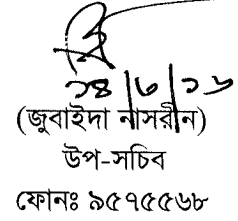 ১৪/৬/১৬
(জুবাইদা নাসরীন)
উপ-সচিব
ফোনঃ ৯৫৭৫৫৬৮